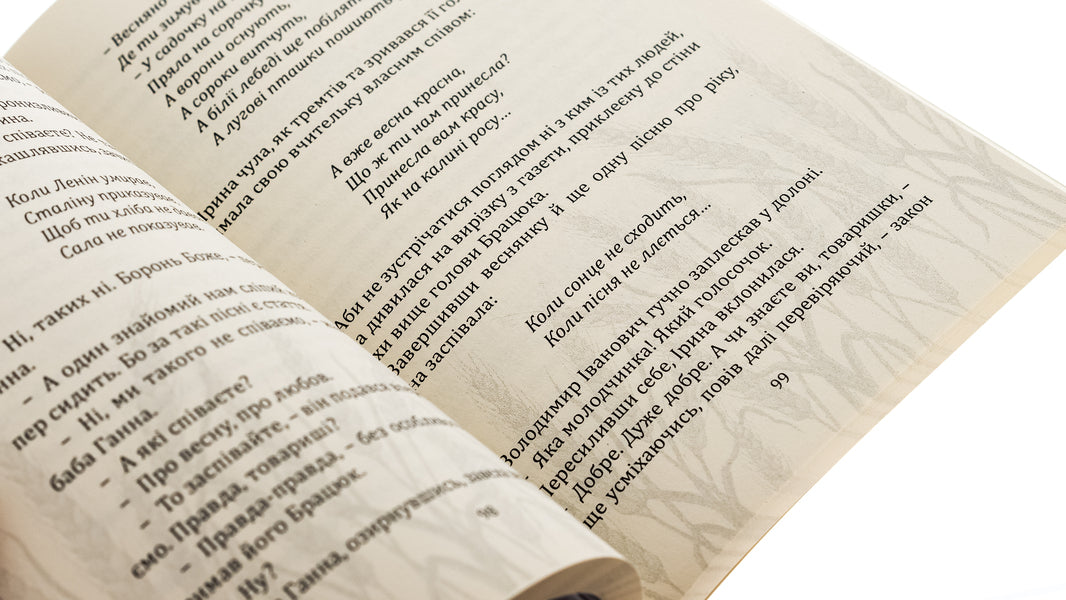 співаєте?
Коли Ленін умирає,
Сталіну приказував
Щоб ти хліба не
Сала не показував.
Ні, таких ні. Боронь Боже, –
– А один знайомий нам
пер сидить. Бо за такі пісні є
– Ні, ми такого не співаємо,
баба Ганна.
– А які співаєте?
– Про весну, про любов.
– То заспівайте, – він
ємо. Правда, товариші?
– Правда-правда, – без
його Брацюк.
– Ну?
Ганна, озирнувшись,
98
– Весняно
Де ти зимув
– У садочку на
Пряла на сорочку
А ворони оснують,
А сороки витчуть,
А білії лебеді ще
А лугові пташки пошиють
Ірина чула, як тремтів та зривався її
мала свою вчительку власним співом:
А вже весна красна,
Що ж ти нам принесла?
Принесла вам красу,
Як на калині росу...
Аби не зустрічатися поглядом ні з ким із тих людей,
дивилася на вирізку з газети, приклеєну до стіни
хи вище голови Брацюка.
Завершивши веснянку й ще одну пісню про ріку,
на заспівала:
Коли сонце не сходить,
Коли пісня не ллється...
Володимир Іванович гучно заплескав у долоні.
– Яка молодчинка! Який голосочок.
Пересиливши себе, Ірина вклонилася.
– Добре. Дуже добре. А чи знаєте ви, товаришки, –
ще усміхаючись, повів далі перевіряючий, – закон
99